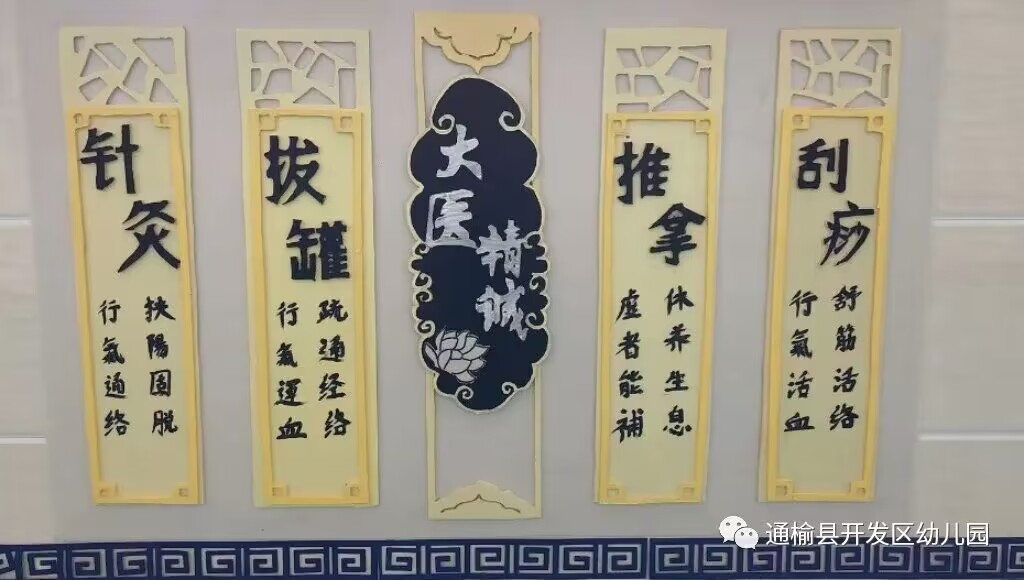 针灸
扶陽固脱
行氣通络
拔罐
疏通经络
行氣運血
大医
精诚
推拿
休养生息
虚者能補
刮痧
舒筋活络
行氣活血
通榆县开发区幼儿园